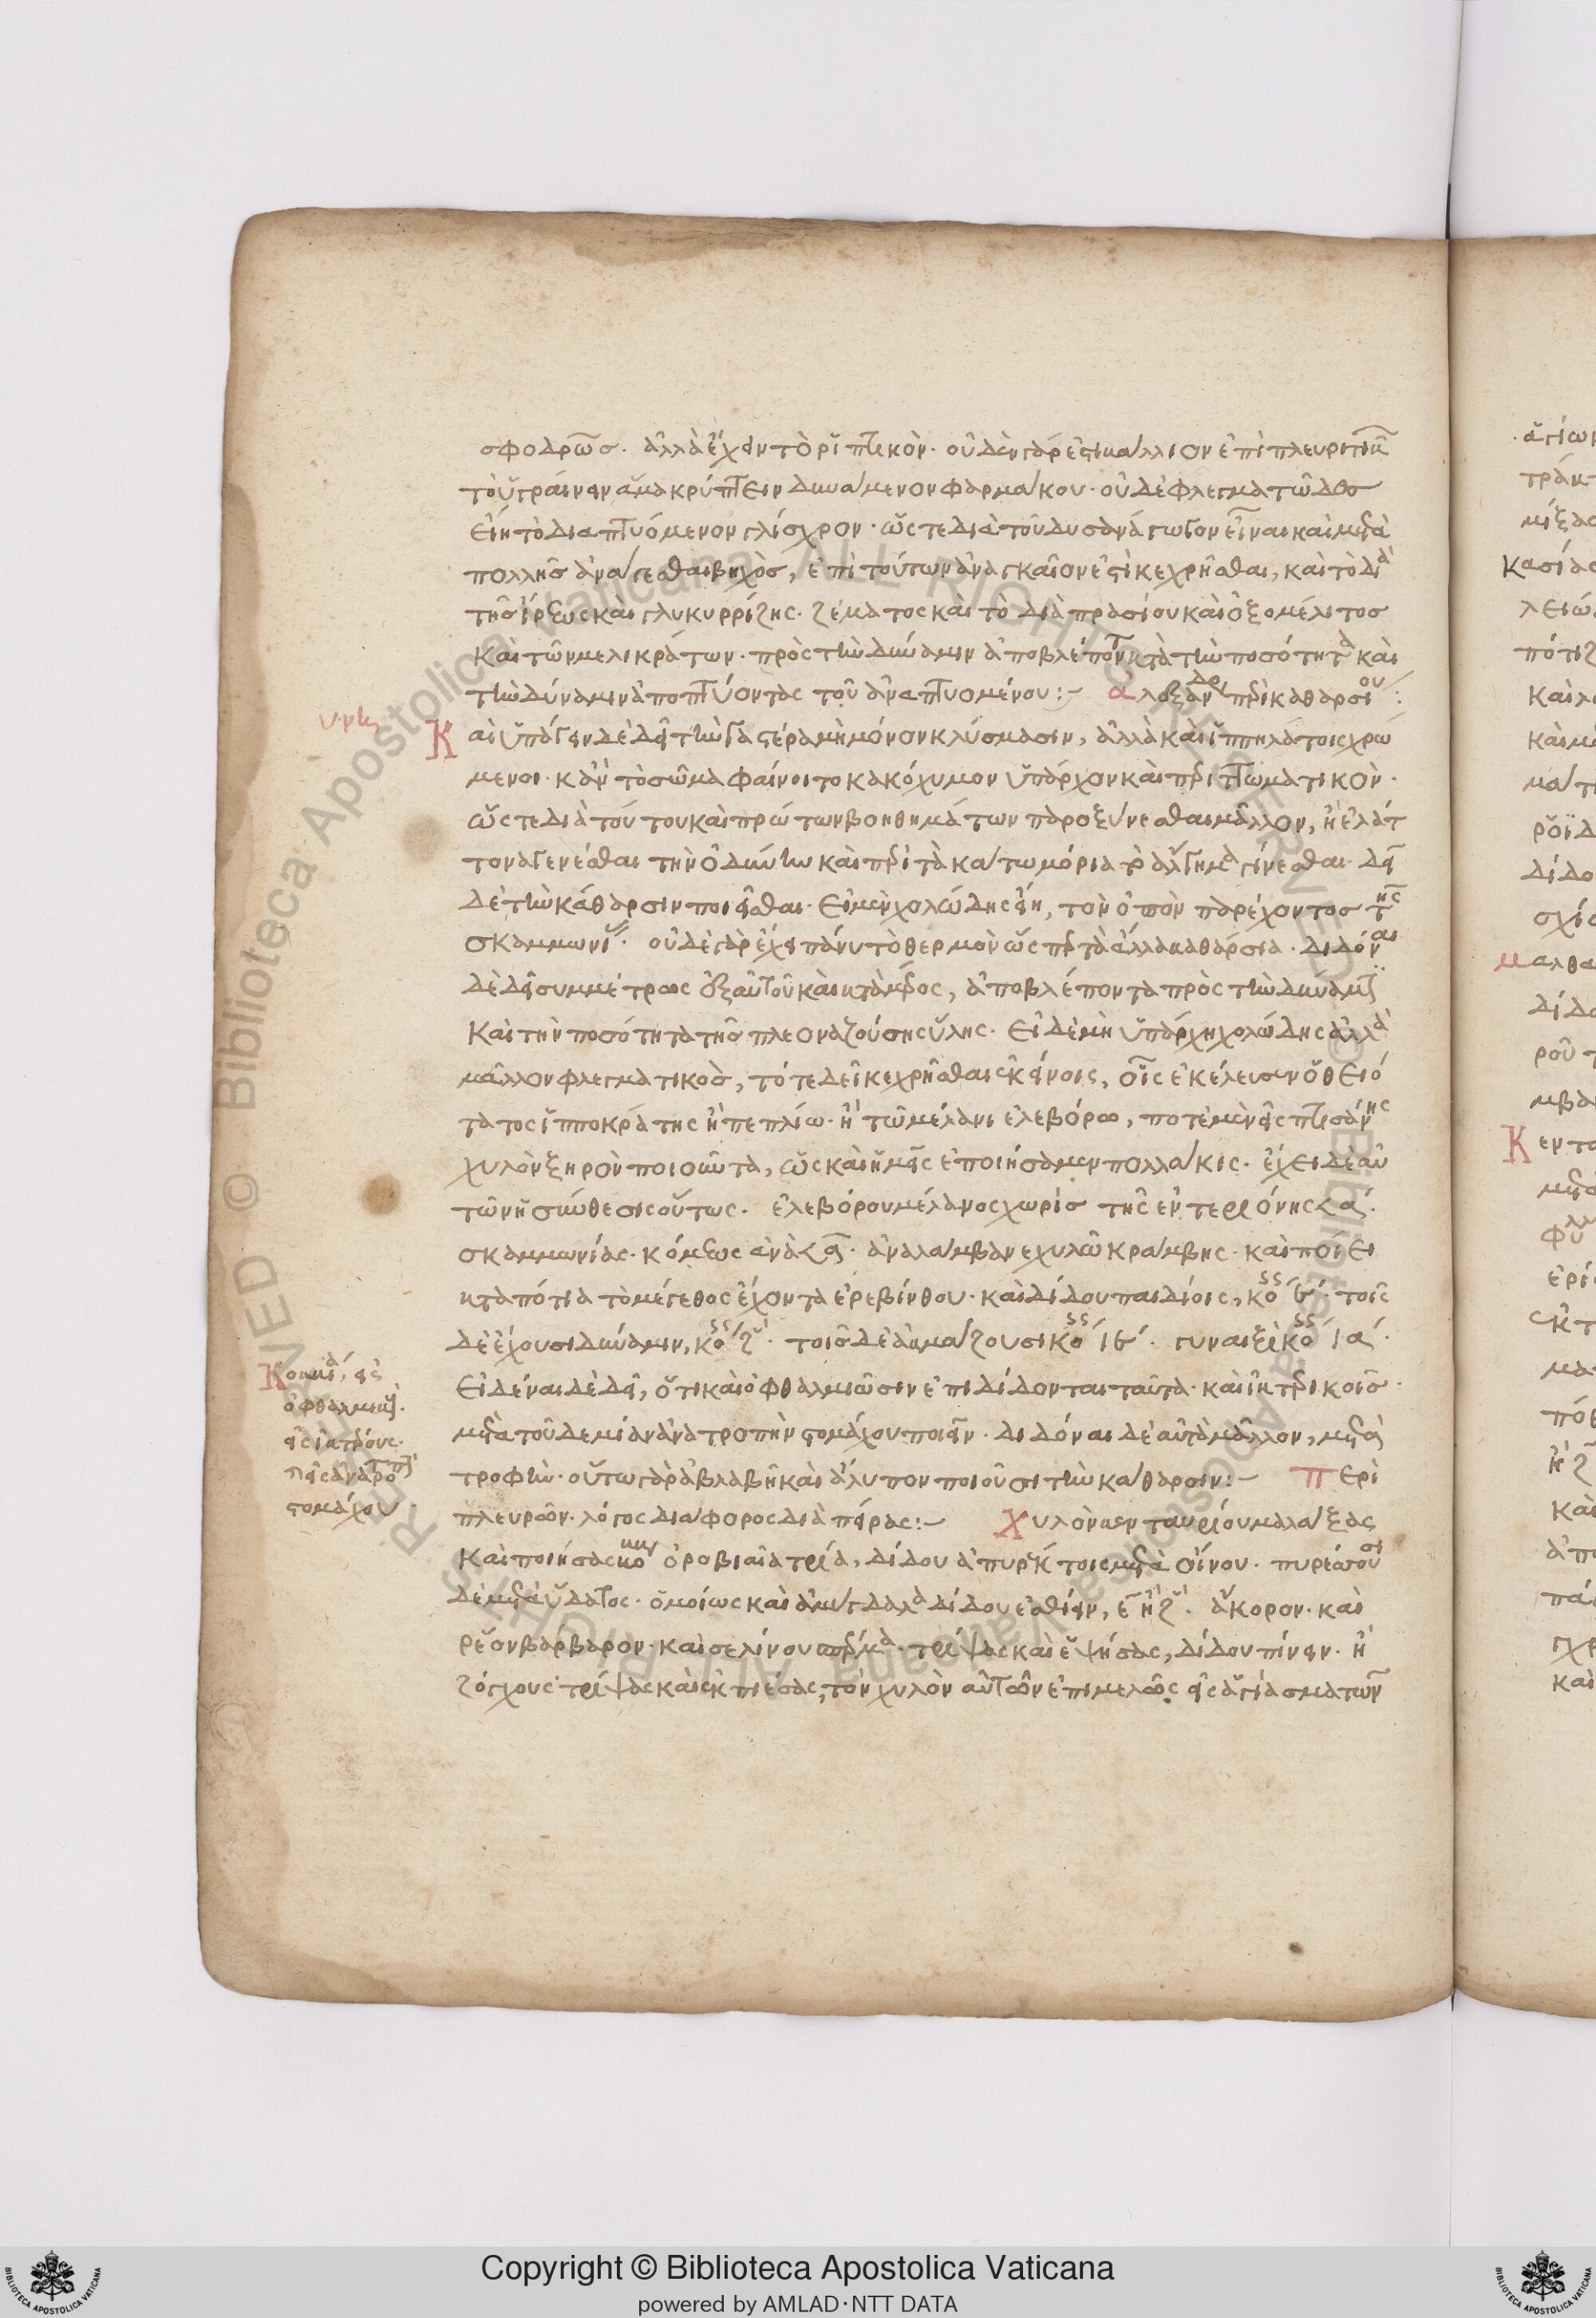 σφοδρῶς. ἀλλὰ ἔχειν τὸ ῥιπτικὸν. οὐδὲν γάρ ἐστι κάλλιον ἐπὶ πλευριτικῶν
τοῦ ὑγραίνειν ἅμα κρύπτειν δυναμένου φαρμάκου. οὐδὲ φλεγματῶδες
εἴη τὸ διαπτυόμενον γλίσχρον. ὥστε διὰ τοῦ δυσανάγωγον εἶναι καὶ μετὰ
πολλῆς ἀνάγεσθαι βηχὸς, ἐπὶ τούτων ἀναγκαῖον ἐστὶ κεχρῆσθαι, καὶ τὸ διὰ
τῆς ἴρεως καὶ γλυκυρρίζης. ζέματος καὶ τὸ διὰ πρασίου καὶ ὀξομέλιτος
καὶ τῶν μελικράτων. πρὸς τὴν δύναμιν ἀποβλέποντα κατὰ τὴν ποσότητα καὶ
τὴν δύναμιν ἀποπτύοντας τοῦ ἀναπτυομένου:- ἀλεξάνδρου περὶ καθαρσίου:
Καὶ ὑπάγειν δὲ δεῖ τὴν γαστέρα μὴ μόνον κλύσμασιν, ἀλλὰ καὶ ὑπηλάτοις χρώ
μενοι. κἂν τὸ σῶμα φαίνοιτο κακόχυμον ὑπάρχον καὶ περιττωματικὸν.
ὥστε διὰ τούτου καὶ πρώτων βοηθημάτων παροξύνεσθαι μᾶλλον, ἢ ἐλάτ
τονα γενέσθαι τὴν ὀδύνην καὶ περὶ τὰ κάτω μόρια τὸ ἄλγημα γίνεσθαι. δεῖ
δὲ τὴν κάθαρσιν ποιεῖσθαι. εἰ μὲν χολώδης εἴη, τὸν ὀπὸν παρέχοντος τῆς
σκαμμωνίας. οὐδὲ γὰρ ἔχει πάνυ τὸ θερμὸν ὡς περ τὰ ἄλλα καθάρσια. διδόναι
δὲ δεῖ συμμέτρως ἐξ αὐτοῦ καὶ κατὰ μέρος, ἀποβλέποντα πρὸς τὴν δύναμιν
καὶ τὴν ποσότητα τῆς πλεοναζούσης ὕλης. εἰ δὲ μὴ ὑπάρχη χολώδης ἀλλὰ
μᾶλλον φλεγματικὸς, τότε δεῖ κεχρῆσθαι ἐκείνοις, οἷς ἐκέλευσεν ὁ θειό
τατος ἱπποκράτης ἢ πεπλίω. ἢ τῶ μέλανι ἐλεβόρω, ποτὲ μὲν εἰς πτισάνης
χυλὸν ξηρὸν ποιοῦντα, ὡς καὶ ἡμεῖς ἐποιήσαμεν πολλάκις. ἔχει δὲ αὐ
τῶν ἡ σύνθεσις οὕτως. ἐλεβόρου μέλανος χωρὶς τῆς ἐντεριόνης < α.
σκαμμωνίας. κόμεως ἀνὰ < α. ἀναλάμβανε χυλῶ κράμβης. καὶ ποίει
καταπότια τὸ μέγεθος ἔχοντα ἐρεβίνθου. καὶ δίδου παιδίοις, κο ϛ. τοῖς
δὲ ἔχουσι δύναμιν, κο ζ. τοῖς δὲ ἀκμάζουσι κο ιϛ. γυναιξὶ κο ια.
Εἰδέναι δὲ δεῖ, ὅτι καὶ ὀφθαλμιῶσιν ἐπιδίδονται ταῦτα. καὶ ἰκτερικοῖς.
μετὰ τοῦ δὲ μίαν ἀνατροπὴν στομάχου ποιεῖν. διδόναι δὲ αὐτὰ μᾶλλον, μετὰ
τροφὴν. οὕτω γὰρ ἀβλαβῆ καὶ ἄλυπον ποιοῦσι τὴν κάθαρσιν:- Περὶ
πλευρῶν. λόγος διάφορος διὰ πείρας:- Χυλὸν κενταυρίου μαλάξας
καὶ ποιήσας κοκκία ὀροβιαῖα τρία, δίδου ἀπυρέκτοις μετὰ οἴνου. πυρέσσουσι
δὲ μετὰ ὕδατος. ὁμοίως καὶ ἀμύγδαλα δίδου ἐσθίειν, ε ἢ ζ. ἄκορον. καὶ
ῥέον βάρβαρον. καὶ σελίνου σπέρμα. τρίψας καὶ ἑψήσας, δίδου πίνειν. ἢ
ζόγχους τρίψας καὶ ἐκπιέσας, τὸν χυλὸν αὐτῶν ἐπιμελῶς εἰς ἁγιάσματων
Κοκκία, εἰς
ὀφθαλμικοὺς.
εἰς ἰατρόνς.
εἰς ἀνατροπὴν
στομάχου.